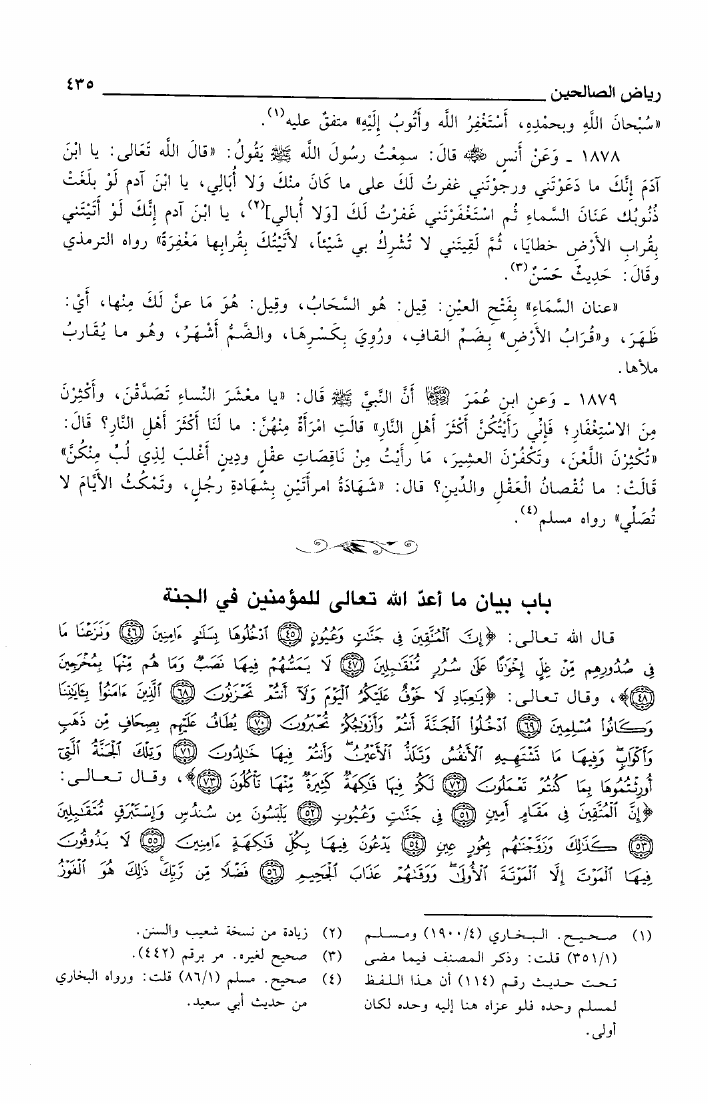 رياض الصالحين ٤٣٥
«سُبْحانَ اللَّهِ وبحمْدِهِ، أَسْتَغْفِرُ اللَّه وأَتُوبُ إِلَيْهِ» متفقٌ عليه(١).
١٨٧٨ ـ وَعَنْ أنسٍ ﷺ قالَ: سمِعْتُ رسُولَ اللَّه ﷺ يَقُولُ: «قالَ اللَّه تَعَالى: يا ابْنَ
آدَمَ إِنَّكَ ما دَعَوْتَني ورجوْتَني غفرتُ لَكَ على ما كَانَ منْكَ وَلا أُبَالِي، يا ابْنَ آدم لَوْ بلَغَتْ
ذُنُوبُك عَنَانَ السَّماءِ ثُم اسْتَغْفَرْتَني غَفرْتُ لَكَ [وَلا أُبالي](٢)، يا ابْنَ آدم إِنَّكَ لَوْ أَتَيْتَني
بِقُرابِ الأَرْضِ خطايَا، ثُمَّ لَقِيتَني لا تُشْرِكُ بي شَيْئاً، لأَتَيْتُكَ بِقُرابِها مَغْفِرَةً» رواه الترمذي
وقَالَ: حَدِيثٌ حَسَنٌ(٣).
«عنان السَّماءِ» بِفَتْحِ العيْنِ: قِيل: هُو السَّحَابُ، وقِيل: هُوَ مَا عنَّ لَكَ مِنْها، أَيْ:
ظَهَرَ، و«قُرَابُ الأَرْضِ» بِضَمِّ القافِ، ورُوِيَ بِكَسْرِهَا، والضَّمُّ أَشْهَرُ، وهُو ما يُقَارِبُ
ملأَها.
١٨٧٩ ـ وَعنِ ابنِ عُمَرَ أَنَّ النَّبيَّ ﷺ قَال: «يا معْشَرَ النِّساءِ تَصَدَّقْنَ، وأَكْثِرْنَ
مِنَ الاسْتِغْفَارِ؛ فَإِنِّي رَأَيْتُكُنَّ أَكْثَرَ أَهْلِ النَّارِ» قالَتِ امْرَأَةٌ مِنْهُنَّ: ما لَنَا أَكْثَرَ أَهْلِ النَّارِ؟ قَالَ:
«تُكْثِرْنَ اللَّعْنَ، وتَكْفُرْنَ العشِيرَ، مَا رأَيْتُ مِنْ نَاقِصَاتِ عقْلٍ ودِينٍ أَغْلبَ لِذِي لُبٍّ مِنْكُنَّ»
قَالَتْ: ما نُقْصانُ الْعَقْلِ والدِّينِ؟ قال: «شَهَادَةُ امرأَتَيْنِ بِشهَادةِ رجُلٍ، وتَمْكُثُ الأَيَّامَ لا
تُصَلِّي» رواه مسلم(٤).
باب بيان ما أعدّ الله تعالى للمؤمنين في الجنة
قال الله تعالى: ﴿إِنَّ ٱلْمُتَّقِينَ فِى جَنَّٰتٍ وَعُيُونٍ ٤٥ ٱدْخُلُوهَا بِسَلَٰمٍ ءَامِنِينَ ٤٦ وَنَزَعْنَا مَا
فِى صُدُورِهِم مِّنْ غِلٍّ إِخْوَٰنًا عَلَىٰ سُرُرٍ مُّتَقَٰبِلِينَ ٤٧ لَا يَمَسُّهُمْ فِيهَا نَصَبٌ وَمَا هُم مِّنْهَا بِمُخْرَجِينَ
٤٨﴾، وقال تعالى: ﴿يَٰعِبَادِ لَا خَوْفٌ عَلَيْكُمُ ٱلْيَوْمَ وَلَآ أَنتُمْ تَحْزَنُونَ ٦٨ ٱلَّذِينَ ءَامَنُوا۟ بِـَٔايَٰتِنَا
وَكَانُوا۟ مُسْلِمِينَ ٦٩ ٱدْخُلُوا۟ ٱلْجَنَّةَ أَنتُمْ وَأَزْوَٰجُكُمْ تُحْبَرُونَ ٧٠ يُطَافُ عَلَيْهِم بِصِحَافٍ مِّن ذَهَبٍ
وَأَكْوَابٍ وَفِيهَا مَا تَشْتَهِيهِ ٱلْأَنفُسُ وَتَلَذُّ ٱلْأَعْيُنُ وَأَنتُمْ فِيهَا خَٰلِدُونَ ٧١ وَتِلْكَ ٱلْجَنَّةُ ٱلَّتِىٓ
أُورِثْتُمُوهَا بِمَا كُنتُمْ تَعْمَلُونَ ٧٢ لَكُمْ فِيهَا فَٰكِهَةٌ كَثِيرَةٌ مِّنْهَا تَأْكُلُونَ ٧٣﴾، وقال تعالى:
﴿إِنَّ ٱلْمُتَّقِينَ فِى مَقَامٍ أَمِينٍ ٥١ فِى جَنَّٰتٍ وَعُيُونٍ ٥٢ يَلْبَسُونَ مِن سُندُسٍ وَإِسْتَبْرَقٍ مُّتَقَٰبِلِينَ
٥٣ كَذَٰلِكَ وَزَوَّجْنَٰهُم بِحُورٍ عِينٍ ٥٤ يَدْعُونَ فِيهَا بِكُلِّ فَٰكِهَةٍ ءَامِنِينَ ٥٥ لَا يَذُوقُونَ
فِيهَا ٱلْمَوْتَ إِلَّا ٱلْمَوْتَةَ ٱلْأُولَىٰ وَوَقَىٰهُمْ عَذَابَ ٱلْجَحِيمِ ٥٦ فَضْلًا مِّن رَّبِّكَ ذَٰلِكَ هُوَ ٱلْفَوْزُ
(١) صحيح. البخاري (١٩٠٠/٤) ومسلم
(٣٥١/١) قلت: وذكر المصنف فيما مضى
تحت حديث رقم (١١٤) أن هذا اللفظ
لمسلم وحده فلو عزاه هنا إليه وحده لكان
أولى.
(٢) زيادة من نسخة شعيب والسنن.
(٣) صحيح لغيره. مر برقم (٤٤٢).
(٤) صحيح. مسلم (٨٦/١) قلت: ورواه البخاري
من حديث أبي سعيد.